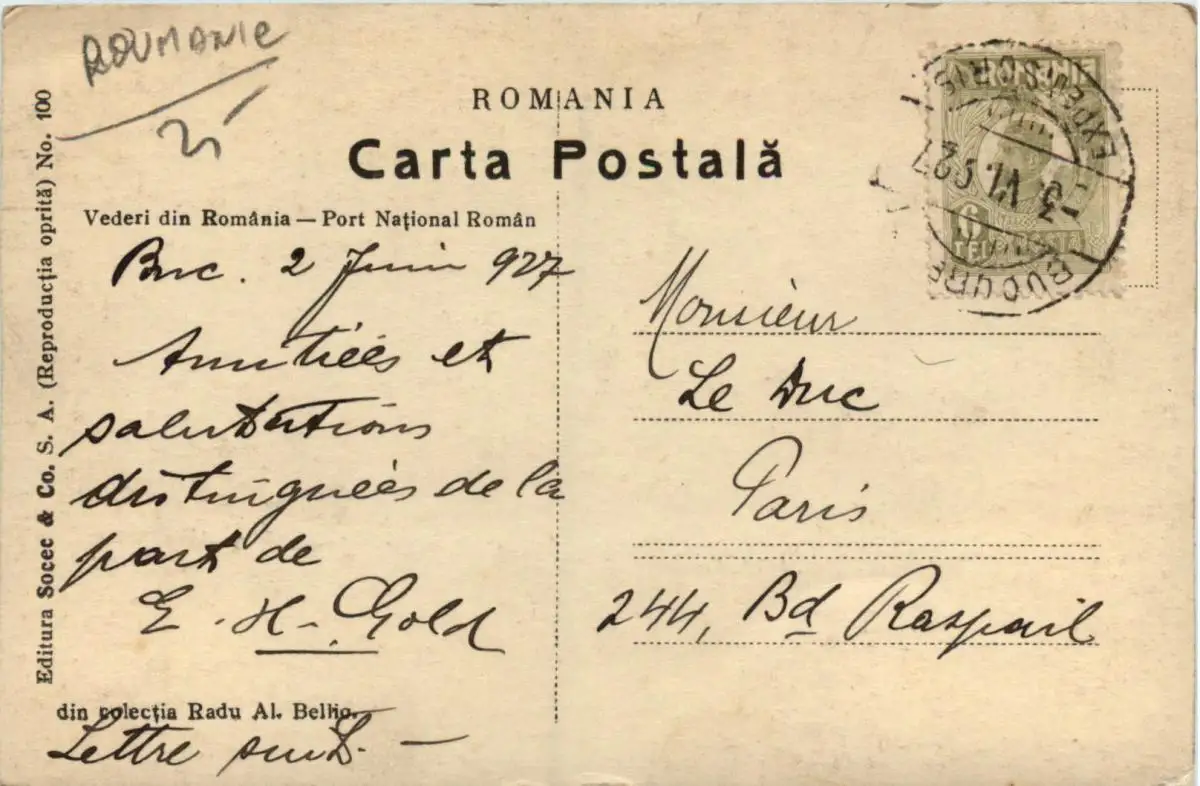 ROUMANIE
ROMANIA
Carta Postală
Vederi din România — Port Național Român
Buc. 2 Juin 927
Amitiées et
salutations
distinguées de la
part de
E. H. Gold
din colecția Radu Al. Bellio.
Lettre suit. —
Editura Socec & Co. S. A. (Reproducția oprită) No. 100
Monsieur
Le Duc
Paris
244, Bd Raspail
ROMANIE
6
-3. VI. 927